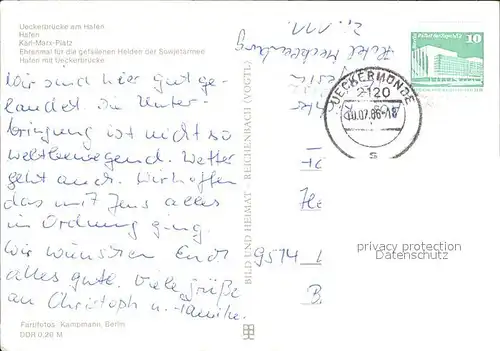 Ueckerbrücke am Hafen
Hafen
Karl-Marx-Platz
Ehrenmal für die gefallenen Helden der Sowjetarmee
Hafen mit Ueckerbrücke
Wir sind hier gut ge-
landet. Die Unter-
bringung ist nicht so
weltbewegend. Wetter
geht auch. Wir hoffen
das mit Jens alles
in Ordnung ging.
Wir wünschen Euch
alles gute. Viele Grüße
an Christoph u.
Farbfotos: Kampmann, Berlin
DDR 0,20 M
BILD UND HEIMAT · REICHENBACH (VOGTL)
Mecklenburg
10
UECKERMÜNDE
2120
10.07.86-18
s
9514
privacy protection
Datenschutz